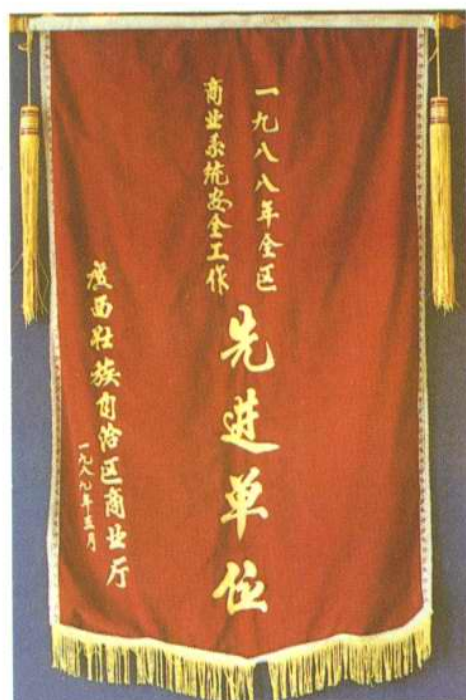 一九八八年全区
商业系统安全工作
先进单位
广西壮族自治区商业厅
一九八九年三月